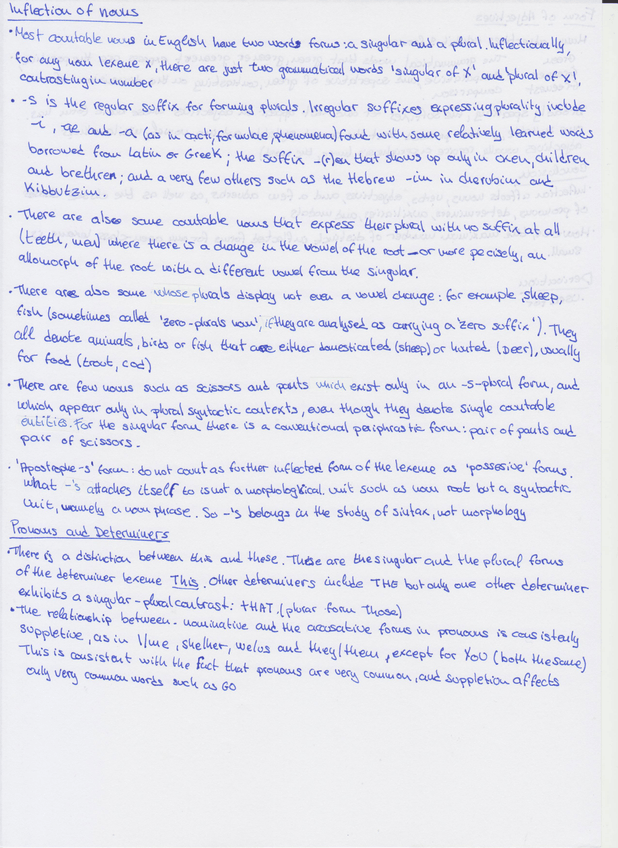 Inflection of nouns
• Most countable nouns in English have two words forms: a singular and a plural. Inflectionally,
for any noun lexeme X, there are just two grammatical words 'singular of X' and 'plural of X',
contrasting in number
• -S is the regular suffix for forming plurals. Irregular suffixes expressing plurality include
-i, -ae and -a (as in cacti, formulae, phenomena) found with some relatively learned words
borrowed from Latin or Greek; the suffix -(r)en that shows up only in oxen, children
and brethren; and a very few others such as the Hebrew -im in cherubim and
Kibbutzim.
• There are also some countable nouns that express their plural with no suffix at all
(teeth, men) where there is a change in the vowel of the root - or more precisely, an
allomorph of the root with a different vowel from the singular.
• There are also some whose plurals display not even a vowel change: for example, sheep,
fish (sometimes called 'zero-plurals noun', if they are analysed as carrying a 'zero suffix'). They
all denote animals, birds or fish that are either domesticated (sheep) or hunted (Deer), usually
for food (trout, cod)
• There are few nouns such as scissors and pants which exist only in an -s-plural form, and
which appear only in plural syntactic contexts, even though they denote single countable
entities. For the singular form there is a conventional periphrastic form: pair of pants and
pair of scissors.
• 'Apostrophe-s' form: do not count as further inflected form of the lexeme as 'possesive' forms.
What -'s attaches itself to is not a morphological unit such as noun root but a syntactic
Unit, namely a noun phrase. So -'s belongs in the study of sintax, not morphology
Pronouns and Determiners
• There is a distinction between this and these. These are the singular and the plural forms
of the determiner lexeme This. Other determiners include THE but only one other determiner
exhibits a singular-plural contrast: THAT. (plural form Those)
• The relationship between nominative and the accusative forms in pronouns is consistently
suppletive, as in I/me, she/her, we/us and they/them, except for YOU (both the same)
This is consistent with the fact that pronouns are very common, and suppletion affects
only very common words such as GO